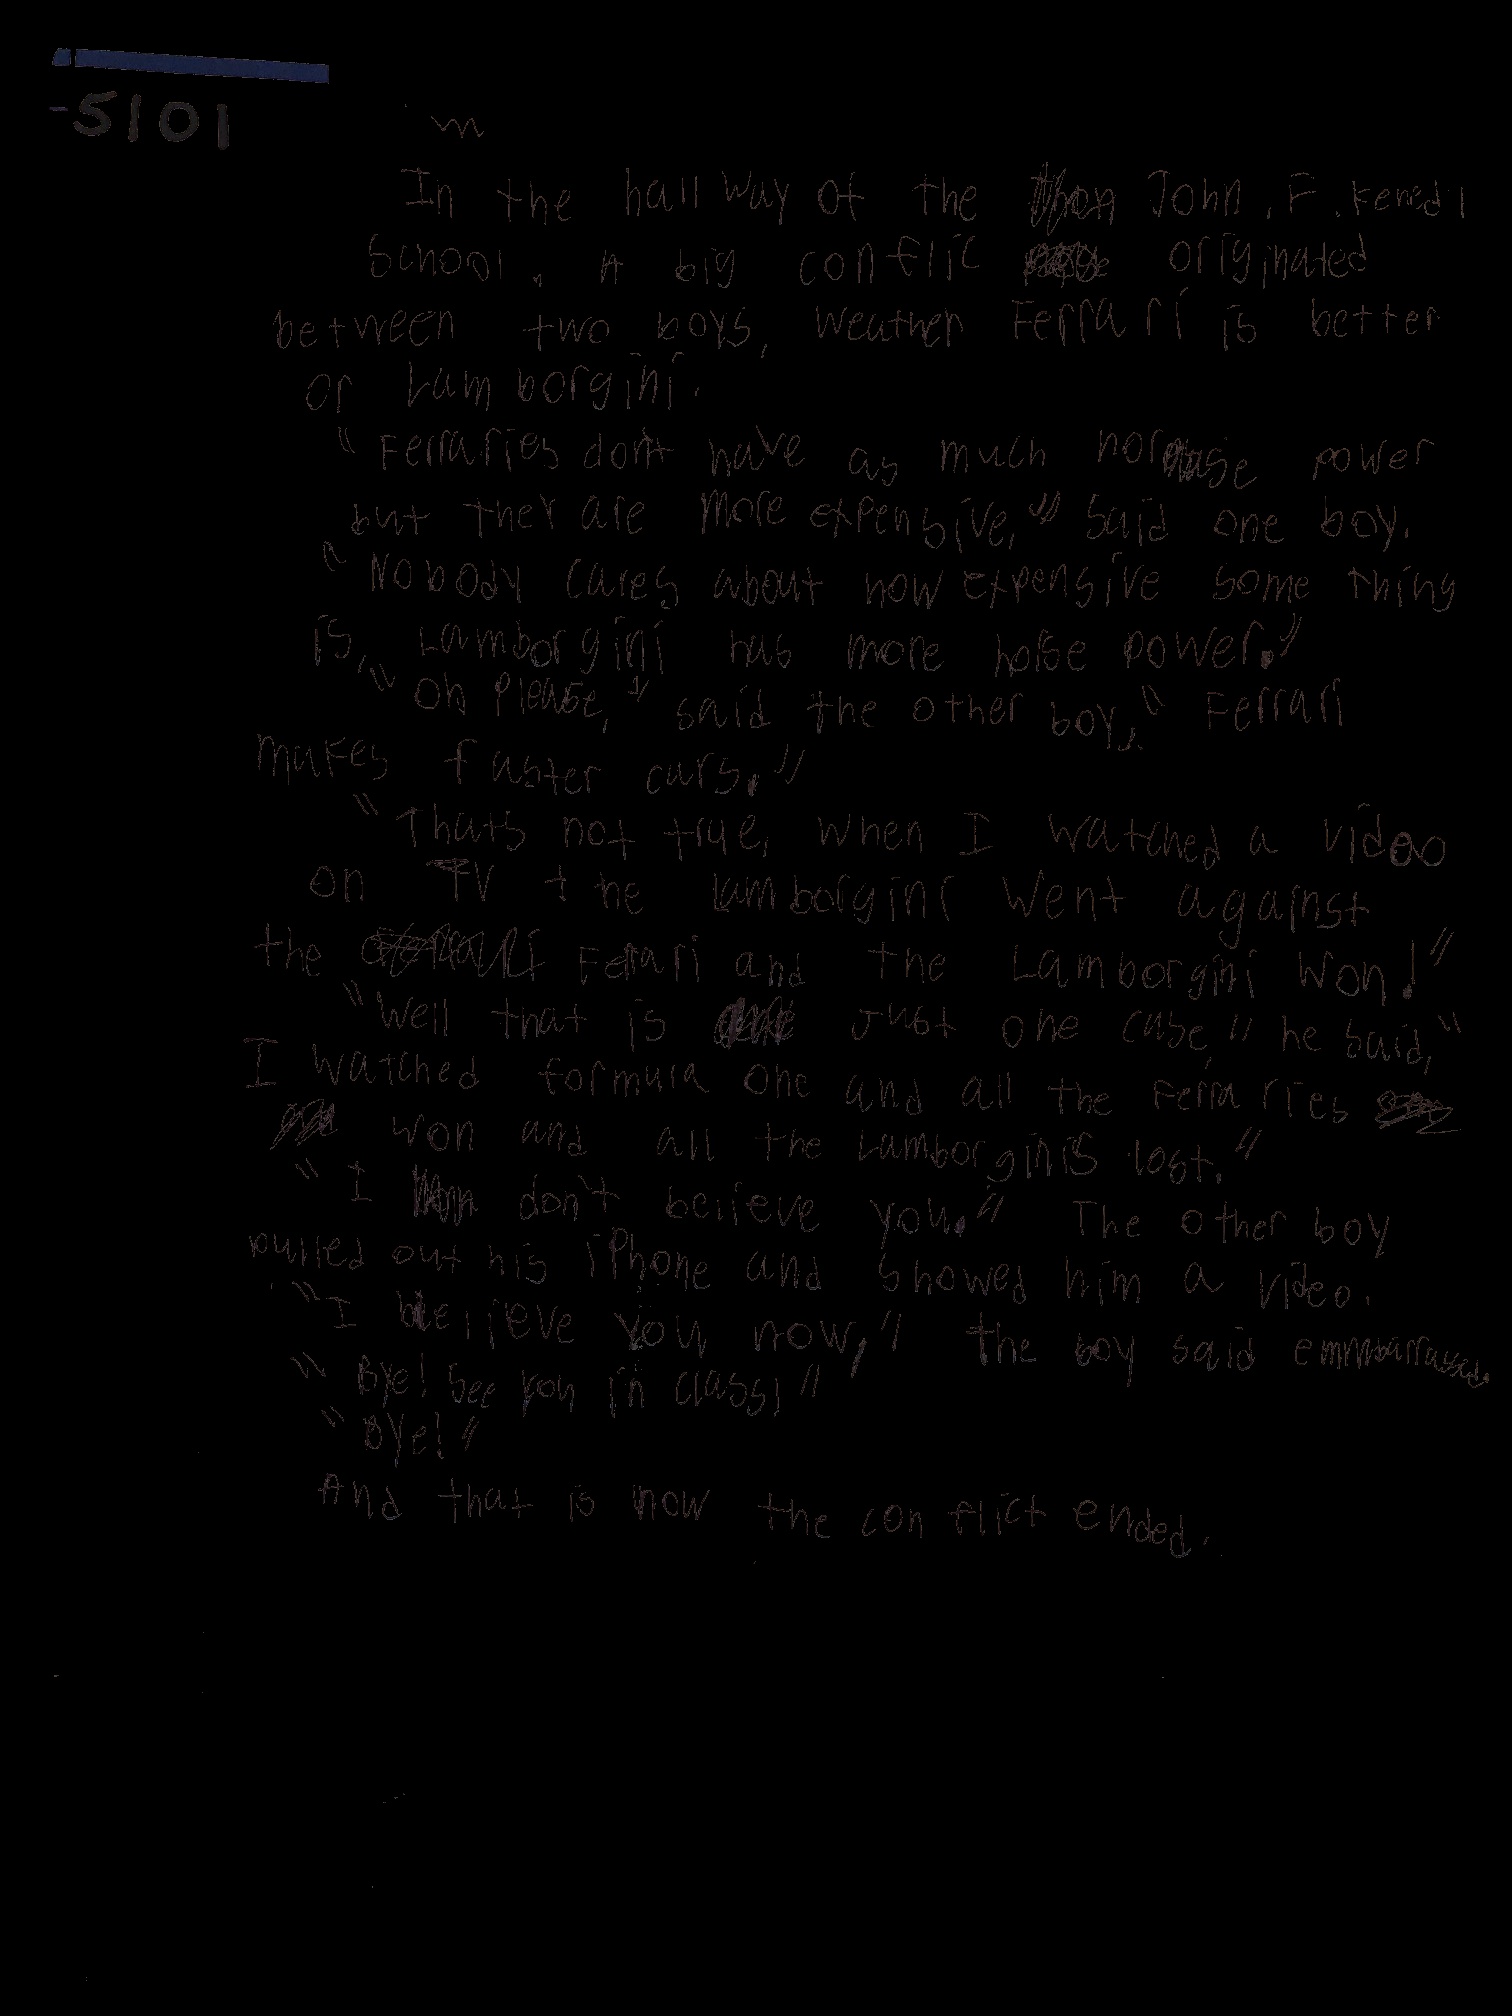 -5101
In the hallway of the John. F. Kenedi
School. A big conflic originated
between two boys, weather Ferrari is better
or Lamborgini.
"Ferraries don't have as much horse power
but they are more expensive," said one boy.
"Nobody cares about how expensive some thing
is, Lamborgini has more horse power."
"Oh please," said the other boy. "Ferrari
makes faster cars."
"Thats not true, when I watched a video
on TV the lamborgini went against
the Ferrari and the Lamborgini won!"
"Well that is just one case," he said, "
I watched formula one and all the Ferraries
won and all the Lamborginis lost."
"I don't believe you." The other boy
pulled out his iPhone and showed him a video.
"I believe you now," the boy said emmbarrassed.
"Bye! See you in class!"
"Bye!"
And that is how the conflict ended.